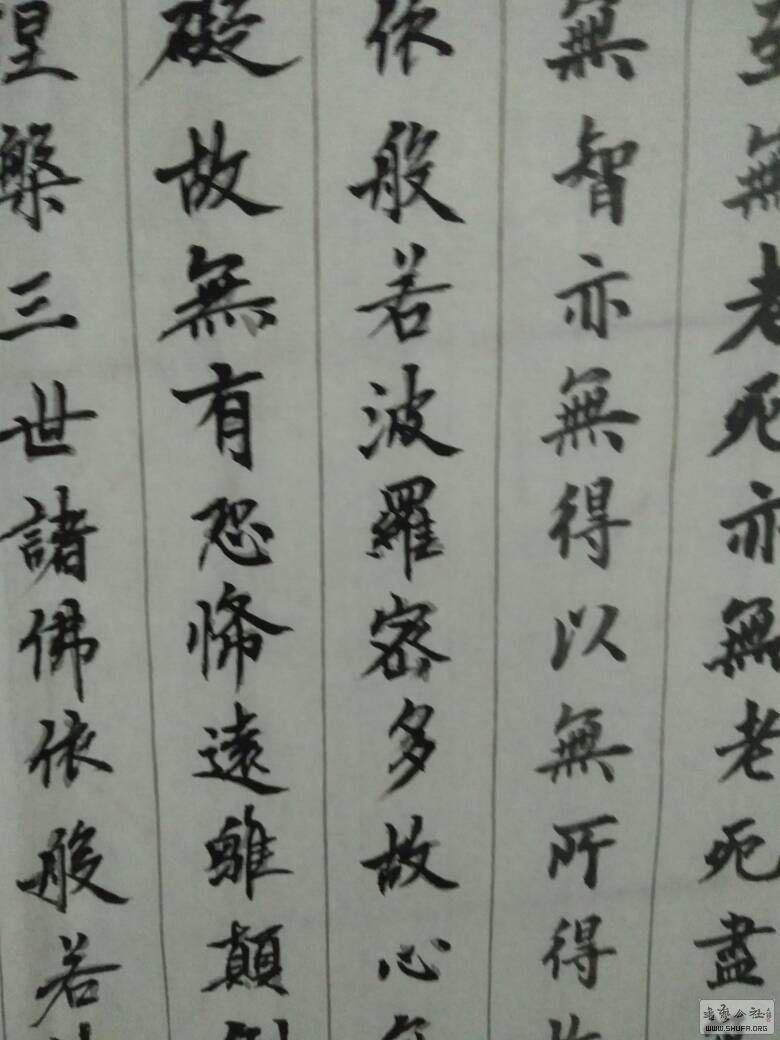 至無老死亦無老死盡
無智亦無得以無所得故
依般若波羅密多故心無
礙故無有恐怖遠離顛倒
槃三世諸佛依般若
書藝公社
www.SHUFA.ORG